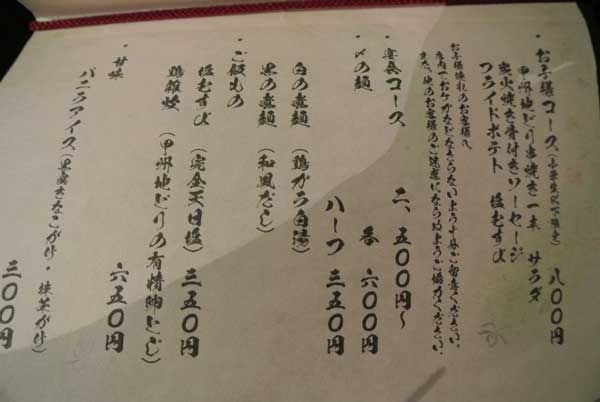 ・お子様コース（小学生以下限定） 八〇〇円
甲州地どり串焼き一本 サラダ
炭火焼き骨付きソーセージ
フライドポテト 塩むすび
お子様連れのお客様へ
店内でおケガなどなさらないよう十分ご留意ください。
また、他のお客様のご迷惑にならぬようご協力ください。
・宴会コース 二、五〇〇円〜
・〆の麺 各 六〇〇円
ハーフ 三五〇円
白の煮麺（鶏がら白湯）
黒の煮麺（和風だし）
・ご飯もの
塩むすび（完全天日塩） 三五〇円
鶏雑炊（甲州地どりの有精卵とじ） 六五〇円
・甘味
バニラアイス（黒蜜きなこがけ・抹茶がけ） 三〇〇円